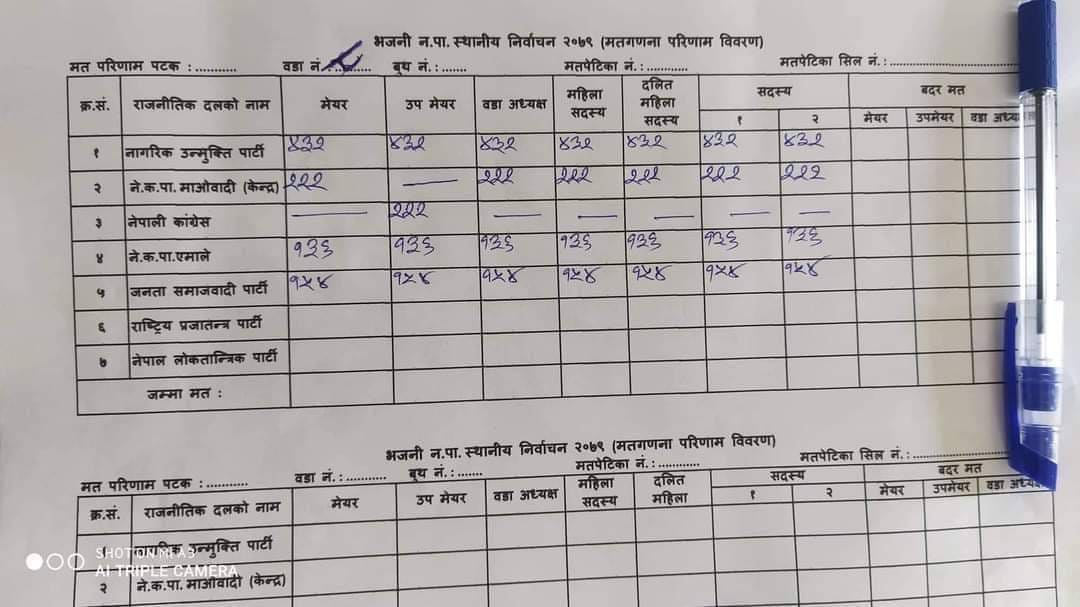 भजनी न.पा. स्थानीय निर्वाचन २०७९ (मतगणना परिणाम विवरण)
मत परिणाम पटक : ........... वडा नं. ........... बुथ नं.: ....... मतपेटिका नं. : ........... मतपेटिका सिल नं. : ...........................
क्र.सं. राजनीतिक दलको नाम मेयर उप मेयर वडा अध्यक्ष महिला सदस्य दलित महिला सदस्य सदस्य बदर मत
१ २ मेयर उपमेयर वडा
१ नागरिक उन्मुक्ति पार्टी ४३२ ४३२ ४३२ ४३२ ४३२ ४३२ ४३२
२ ने.क.पा. माओवादी (केन्द्र) २२२ — २२२ २२२ २२२ २२२ २२२
३ नेपाली कांग्रेस — २२२ — — — — —
४ ने.क.पा.एमाले १३६ १३६ १३६ १३६ १३६ १३६ १३६
५ जनता समाजवादी पार्टी १५४ १५४ १५४ १५४ १५४ १५४ १५४
६ राष्ट्रिय प्रजातन्त्र पार्टी
७ नेपाल लोकतान्त्रिक पार्टी
जम्मा मत :
भजनी न.पा. स्थानीय निर्वाचन २०७९ (मतगणना परिणाम विवरण)
मत परिणाम पटक : ........... वडा नं.: ........... बुथ नं.: ....... मतपेटिका नं.: ........... मतपेटिका सिल नं. : ...........................
क्र.सं. राजनीतिक दलको नाम मेयर उप मेयर वडा अध्यक्ष महिला सदस्य दलित महिला सदस्य बदर मत
१ २ मेयर उपमेयर वडा
उन्मुक्ति पार्टी
२ ने.क.पा. माओवादी (केन्द्र)
SHOT ON MI A3
AI TRIPLE CAMERA